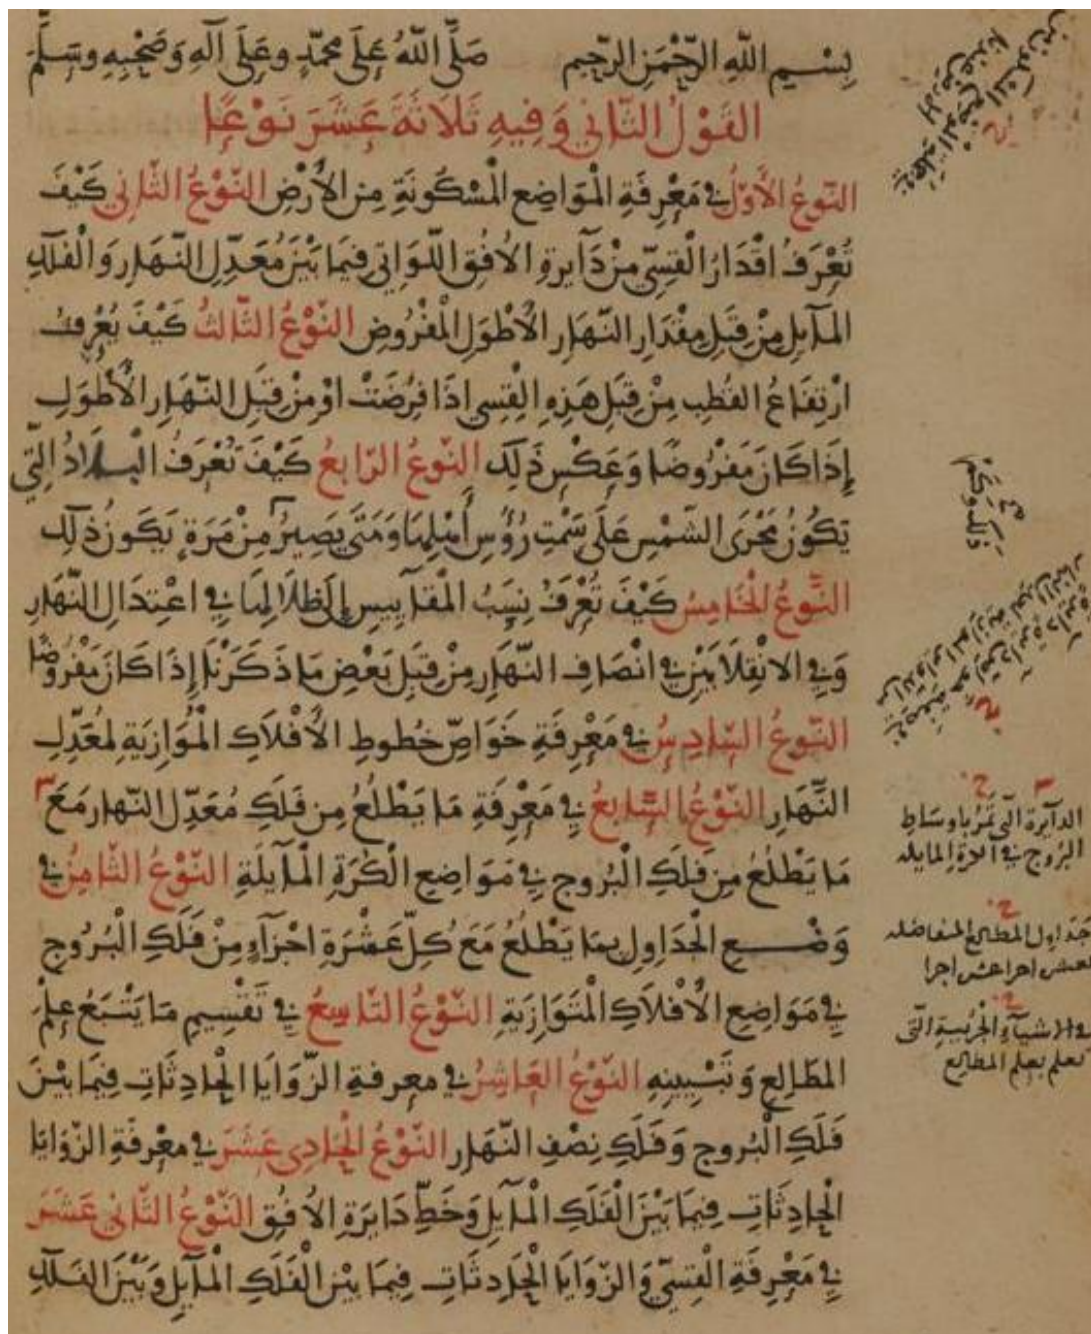 بِسْـيـمِ اللّٰهِ الرَّحْمٰنِ الرَّحِيمِ صَلَّى اللّٰهُ عَلَى مُحَمَّدٍ وَعَلَى آلِهِ وَصَحْبِهِ وَسَلَّمَ
القَوْلُ الثَّانِي وَفِيهِ ثَلَاثَةَ عَشَرَ نَوْعًا
النَّوْعُ الأَوَّلُ فِي مَعْرِفَةِ الْمَوَاضِعِ الْمَسْكُونَةِ مِنَ الأَرْضِ النَّوْعُ الثَّانِي كَيْفَ
تُعْرَفُ اقْدَارُ القِسِيِّ مِنْ دَآيِرَةِ الأُفُقِ اللَّوَاتِي فِيمَا بَيْنَ مُعَدِّلِ النَّهَارِ وَالْفَلَكِ
المَآيِلِ مِنْ قِبَلِ مِقْدَارِ النَّهَارِ الأَطْوَلِ الْمَفْرُوضِ النَّوْعُ الثَّالِثُ كَيْفَ يُعْرَفُ
ارْتِفَاعُ القُطْبِ مِنْ قِبَلِ هَذِهِ القِسِي اذَا فُرِضَتْ اوْ مِنْ قِبَلِ النَّهَارِ الأَطْوَلِ
إِذَا كَانَ مَفْرُوضًا وَعَكْسِ ذَلِكَ النَّوْعُ الرَّابِعُ كَيْفَ تُعْرَفُ الْبِلَادُ الَّتِي
يَكُونُ مَجْرَى الشَّمْسِ عَلَى سَمْتِ رُؤُسِ أَهْلِهَا وَمَتَى يَصِيرُ كَمْ مِنْ مَرَةٍ يَكُونُ ذَلِكَ
النَّوْعُ الْخَامِسُ كَيْفَ تُعْرَفُ نِسَبُ الْمَقَآيِيسِ إِلَى ظِلَالِهَا فِي اعْتِدَالِ النَّهَارِ
وَفِي الانْقِلَابَيْنِ فِي انْصَافِ النَّهَارِ مِنْ قِبَلِ بَعْضِ مَا ذَكَرْنَا إِذَا كَانَ مَفْرُوضًا
النَّوْعُ السَّادِسُ فِي مَعْرِفَةِ خَوَاصِّ خُطُوطِ الأَفْلَاكِ الْمُوَازِيَةِ لِمُعَدِّلِ
النَّهَارِ النَّوْعُ السَّابِعُ فِي مَعْرِفَةِ مَا يَطْلُعُ مِن فَلَكِ مُعَدِّلِ النَّهَارِ مَعَ
مَا يَطْلُعُ مِن فَلَكِ الْبُرُوجِ فِي مَوَاضِعِ الْكُرَةِ الْمَآيِلَةِ النَّوْعُ الثَّامِنُ فِي
وَضْـــعِ الْجَدَاوِلِ بِمَا يَطْلُعُ مَعَ كُلِّ عَشْرَةِ اجْزَآءٍ مِنْ فَلَكِ الْبُرُوجِ
فِي مَوَاضِعِ الأَفْلَاكِ الْمُتَوَازِيَةِ النَّوْعُ التَّاسِعُ فِي تَقْسِيمِ مَا يَتْبَعُ عِلْمَ
المَطَالِعِ وَتَبْيِينِهِ النَّوْعُ العَاشِرُ فِي مَعرِفَةِ الزَّوَايَا الْحَادِثَاتِ فِيمَا بَيْنَ
فَلَكِ الْبُرُوجِ وَفَلَكِ نِصْفِ النَّهَارِ النَّوْعُ الْحَادِي عَشَرَ فِي مَعْرِفَةِ الزَّوَايَا
الْحَادِثَاتِ فِيمَا بَيْنَ الْفَلَكِ الْمَآيِلِ وَخَطِّ دَايِرَةِ الأُفُقِ النَّوْعُ الثَّانِي عَشَرَ
فِي مَعْرِفَةِ القِسِيِّ وَالزَّوَايَا الْحَادِثَاتِ فِيمَا بَيْنَ الْفَلَكِ الْمَآيِلِ وَبَيْنَ الفَلَكِ
ذلك وكم
الدآيرة التي تمر باوساط
البُرُوج في الاكرة المايله
جداول المطالع المتفاضله
في الاشيآء الجزييةِ الّتى
تعلم بعلم المطالع